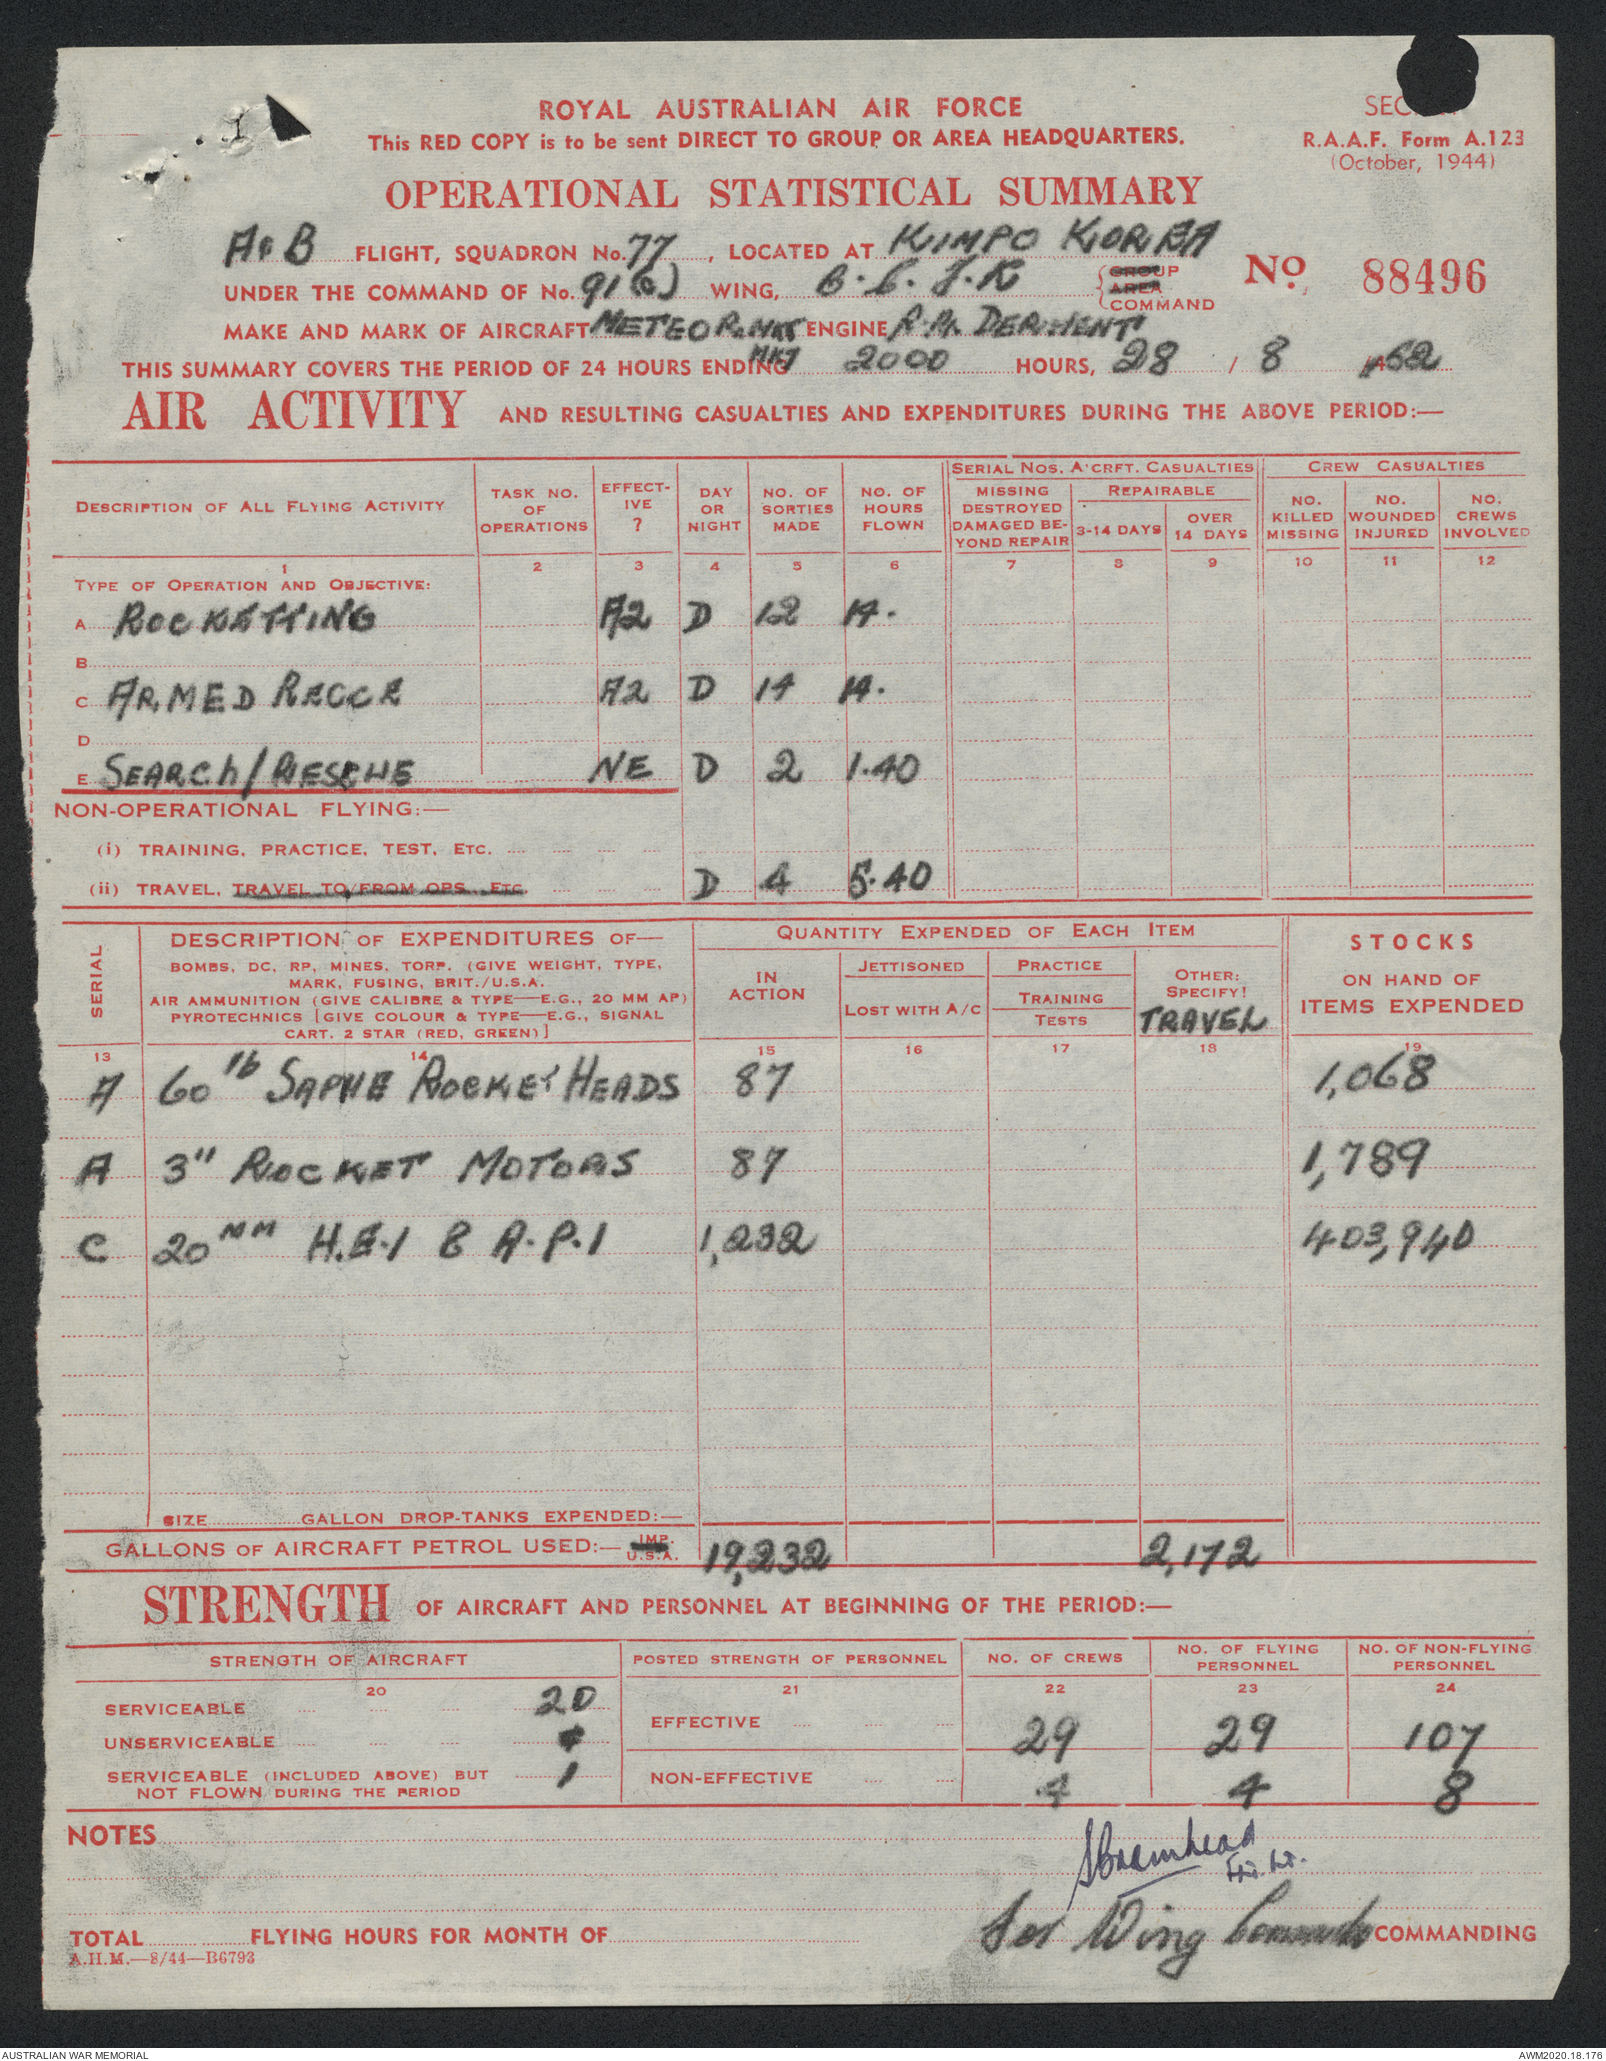 ROYAL AUSTRALIAN AIR FORCE
This RED COPY is to be sent DIRECT TO GROUP OR AREA HEADQUARTERS.
R.A.A.F. Form A.123
(October, 1944)
OPERATIONAL STATISTICAL SUMMARY
A & B FLIGHT, SQUADRON No. 77, LOCATED AT KIMPO KOREA
No. 88496
UNDER THE COMMAND OF No. 91(C) WING, GROUP AREA COMMAND
MAKE AND MARK OF AIRCRAFT METEOR ENGINE R.R. DERWENT
THIS SUMMARY COVERS THE PERIOD OF 24 HOURS ENDING 2000 HOURS, 28 / 8 /52
AIR ACTIVITY AND RESULTING CASUALTIES AND EXPENDITURES DURING THE ABOVE PERIOD:—
DESCRIPTION OF ALL FLYING ACTIVITY
TASK NO. OF OPERATIONS
EFFECT-IVE ?
DAY OR NIGHT
NO. OF SORTIES MADE
NO. OF HOURS FLOWN
SERIAL NOS. A'CRFT. CASUALTIES
MISSING DESTROYED DAMAGED BE-YOND REPAIR
REPAIRABLE
3-14 DAYS
OVER 14 DAYS
CREW CASUALTIES
NO. KILLED MISSING
NO. WOUNDED INJURED
NO. CREWS INVOLVED
1 2 3 4 5 6 7 8 9 10 11 12
TYPE OF OPERATION AND OBJECTIVE:
A ROCKETTING A2 D 12 14.
B
C ARMED RECCE A2 D 14 14.
D
E SEARCH/RESCUE NE D 2 1.40
NON-OPERATIONAL FLYING:—
(i) TRAINING, PRACTICE, TEST, ETC.
(ii) TRAVEL, TRAVEL TO/FROM OPS. ETC. D 4 5.40
SERIAL
DESCRIPTION OF EXPENDITURES OF—
BOMBS, DC, RP, MINES, TORP. (GIVE WEIGHT, TYPE,
MARK, FUSING, BRIT./U.S.A.
AIR AMMUNITION (GIVE CALIBRE & TYPE—E.G., 20 MM AP)
PYROTECHNICS [GIVE COLOUR & TYPE—E.G., SIGNAL
CART. 2 STAR (RED, GREEN)]
QUANTITY EXPENDED OF EACH ITEM
IN ACTION
JETTISONED
LOST WITH A/C
PRACTICE
TRAINING
TESTS
OTHER: SPECIFY!
TRAVEL
STOCKS
ON HAND OF
ITEMS EXPENDED
13 14 15 16 17 18 19
A 60 lb SAPHE ROCKET HEADS 87 1,068
A 3" ROCKET MOTORS 87 1,789
C 20 MM H.E.I & A.P.I 1,232 403,940
SIZE GALLON DROP-TANKS EXPENDED:—
GALLONS OF AIRCRAFT PETROL USED:— IMP. U.S.A. 19,232 2,172
STRENGTH OF AIRCRAFT AND PERSONNEL AT BEGINNING OF THE PERIOD:—
STRENGTH OF AIRCRAFT
POSTED STRENGTH OF PERSONNEL
NO. OF CREWS
NO. OF FLYING PERSONNEL
NO. OF NON-FLYING PERSONNEL
20 21 22 23 24
SERVICEABLE 20
UNSERVICEABLE
SERVICEABLE (INCLUDED ABOVE) BUT NOT FLOWN DURING THE PERIOD 1
EFFECTIVE 29 29 107
NON-EFFECTIVE 4 4 8
NOTES
Bramhead
Flt. Lt.
for Wing Commander COMMANDING
TOTAL FLYING HOURS FOR MONTH OF
A.H.M.—8/44—B6793
AUSTRALIAN WAR MEMORIAL
AWM2020.18.176